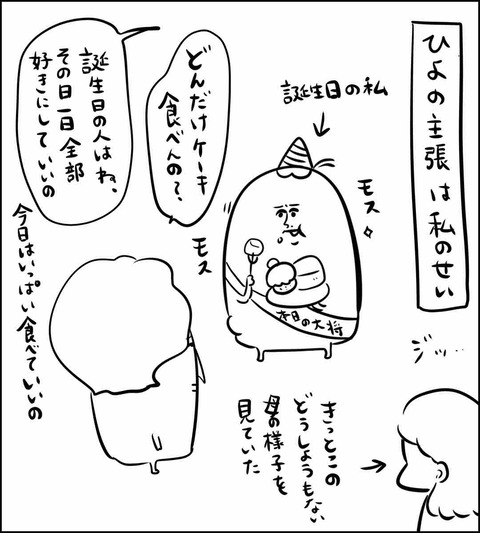 ひよの主張は私のせい
誕生日の私
どんだけケーキ
食べんの?
誕生日の人はね、
その日一日全部
好きにしていいの
今日はいっぱい食べていいの
モス
モス
本日の大将
ジッ…
きっとこの
どうしようもない
母の様子を
見ていた